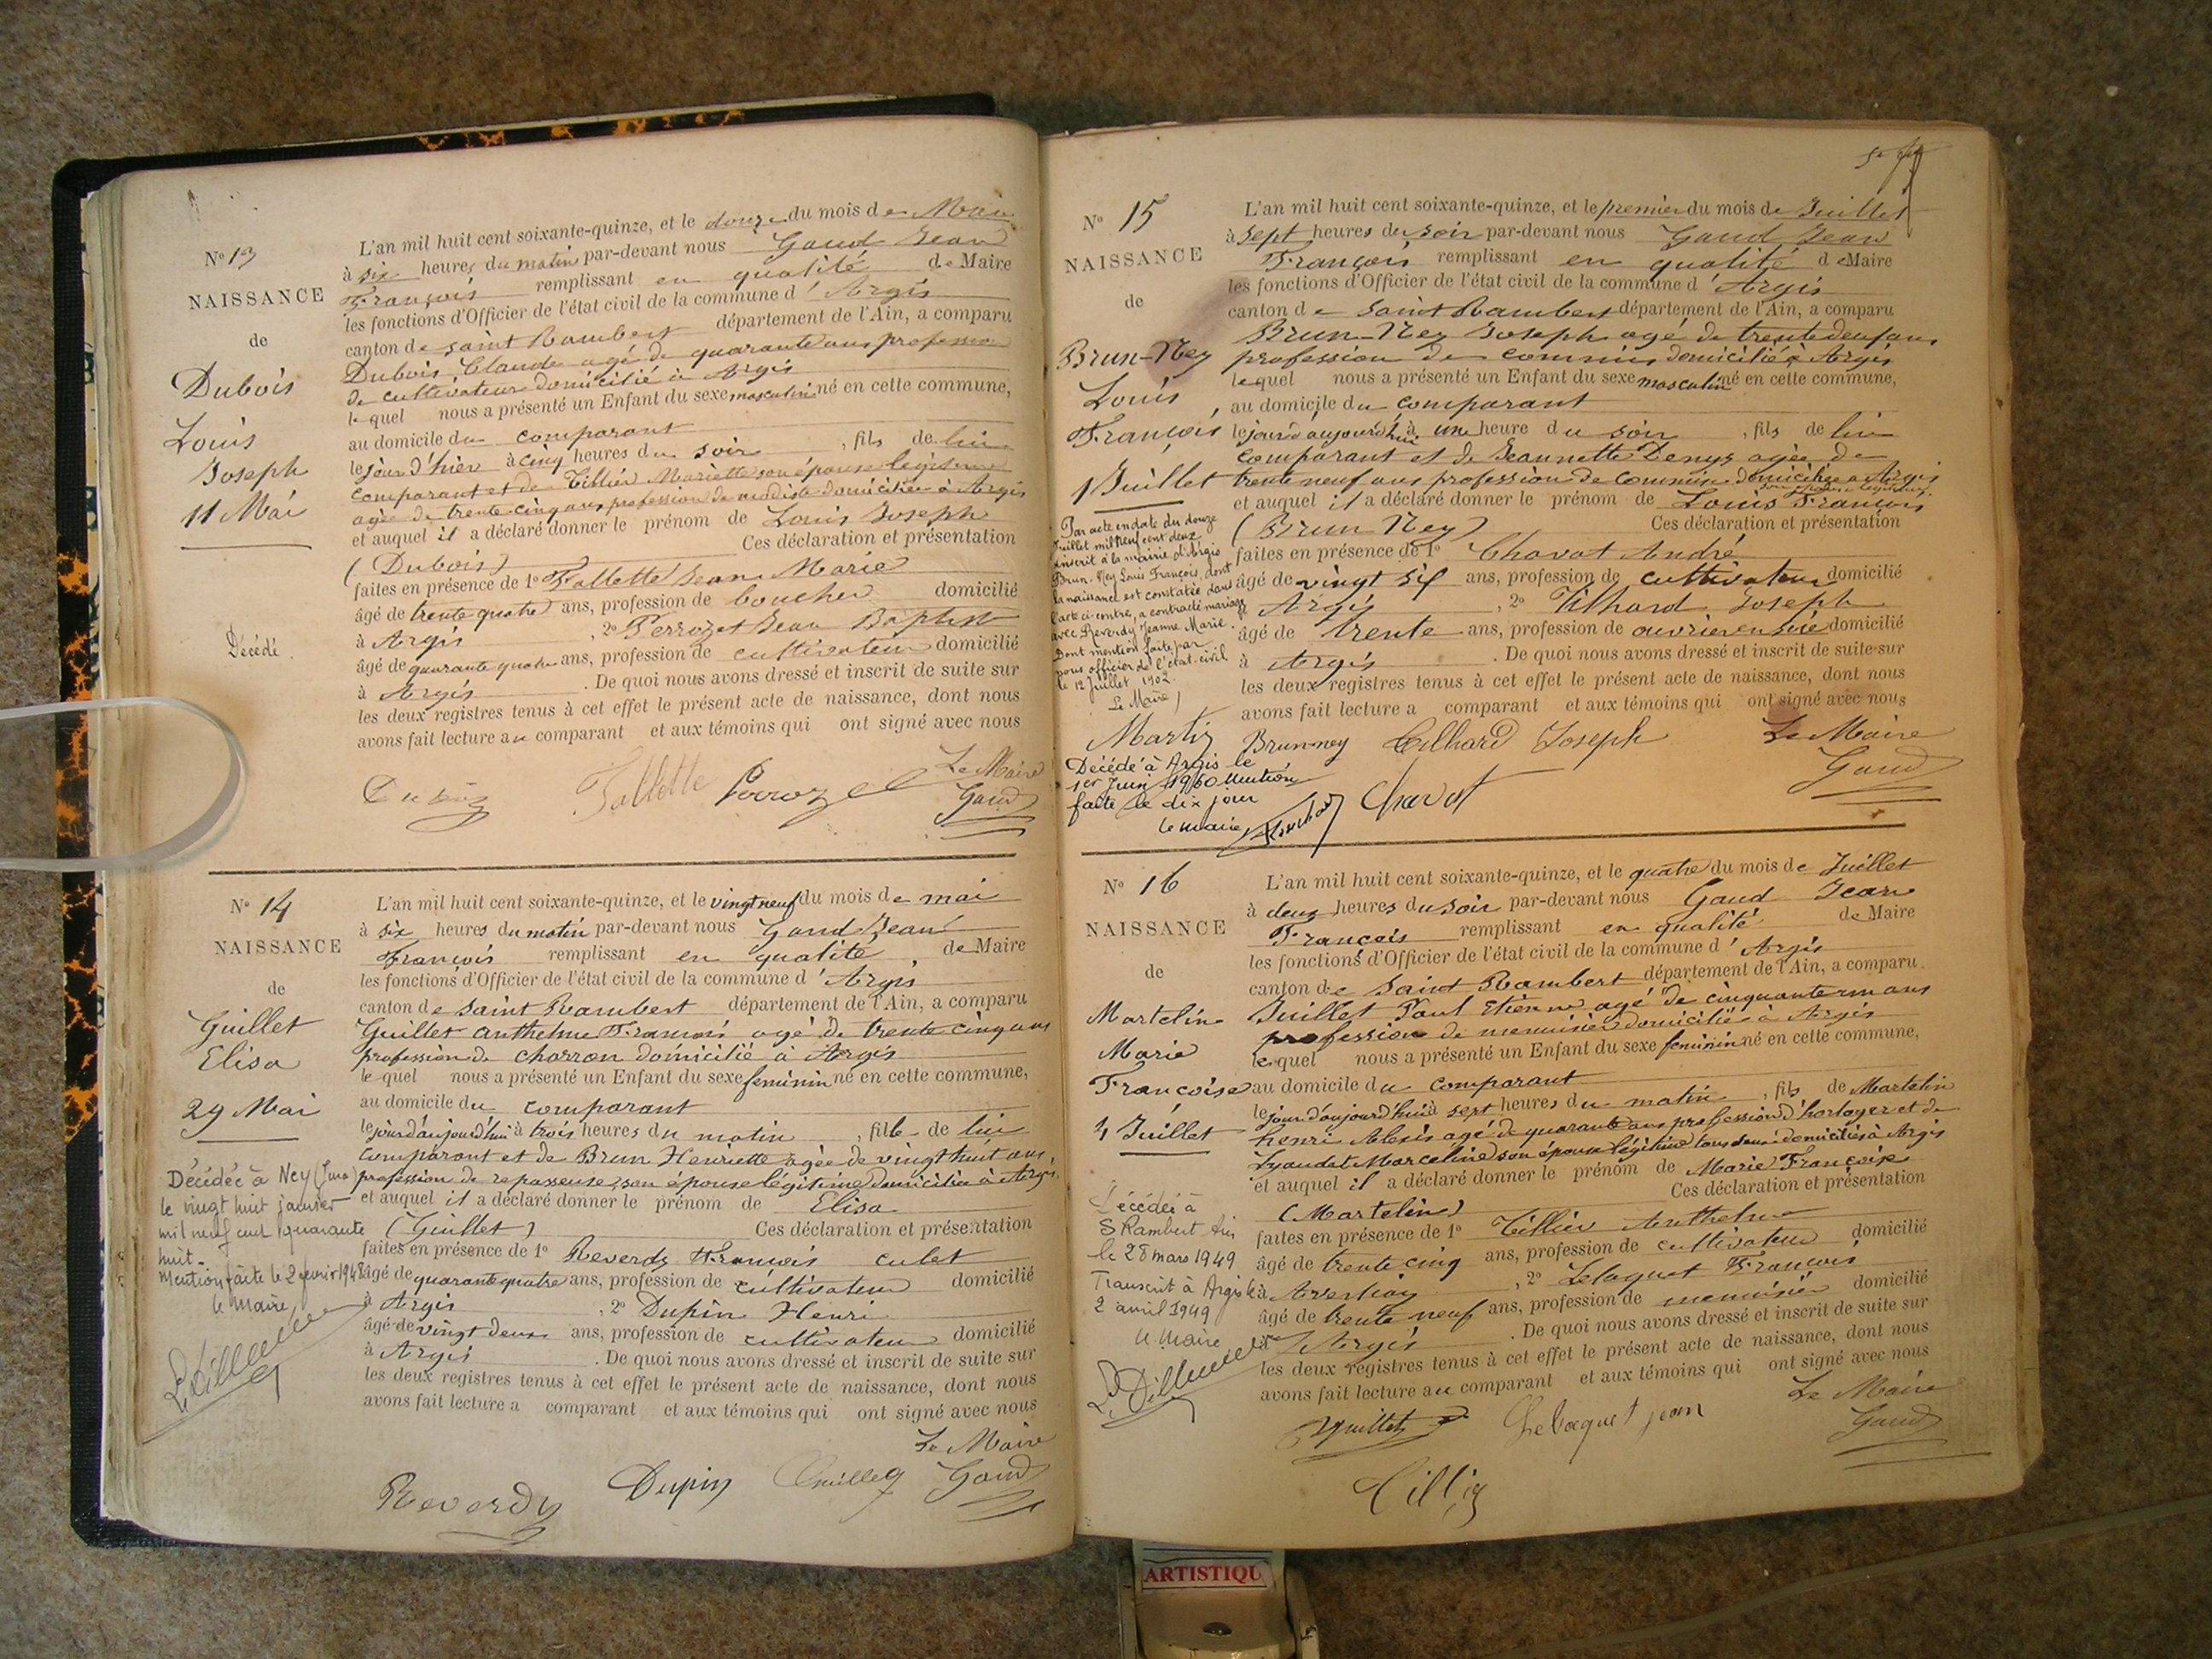 N° 13
NAISSANCE
de
Dubois
Louis
Joseph
11 Mai
Décédé.
L'an mil huit cent soixante-quinze, et le douze du mois de Mai
à six heures du matin par-devant nous Gaud Jean
François remplissant en qualité de Maire
les fonctions d'Officier de l'état civil de la commune d'Argis
canton de saint Rambert département de l'Ain, a comparu
Dubois Claude agé de quarante ans profession
de cultivateur domicilié à Argis
lequel nous a présenté un Enfant du sexe masculin né en cette commune,
au domicile du comparant
le jour d'hier à cinq heures du soir, fils de lui
comparant et de Tillier Mariette son épouse légitime
agée de trente cinq ans profession de modiste domiciliée à Argis
et auquel il a déclaré donner le prénom de Louis Joseph
(Dubois) Ces déclaration et présentation
faites en présence de 1° Follette Jean Marie
âgé de trente quatre ans, profession de boucher domicilié
à Argis, 2° Perrozet Jean Baptist
âgé de quarante quatre ans, profession de cultivateur domicilié
à Argis. De quoi nous avons dressé et inscrit de suite sur
les deux registres tenus à cet effet le présent acte de naissance, dont nous
avons fait lecture au comparant et aux témoins qui ont signé avec nous
Le Maire
Dubois Follette Perrozet Gaud
N° 14
NAISSANCE
de
Guillet
Elisa
29 Mai
Décédée à Ney (Jura)
le vingt huit janvier
mil neuf cent quarante
huit.
Mention faite le 2 fevrier 1948
le maire,
L'an mil huit cent soixante-quinze, et le vingt neuf du mois de mai
à six heures du matin par-devant nous Gaud Jean
François remplissant en qualité de Maire
les fonctions d'Officier de l'état civil de la commune d'Argis
canton de Saint Rambert département de l'Ain, a comparu
Guillet Anthelme François agé de trente cinq ans
profession de charron domicilié à Argis
lequel nous a présenté un Enfant du sexe feminin né en cette commune,
au domicile du comparant
le jour d'aujourd'hui à trois heures du matin, fille de lui
comparant et de Brun Henriette agée de vingt huit ans,
profession de repasseuse, son épouse légitime domiciliée à Argis,
et auquel il a déclaré donner le prénom de Elisa
(Guillet) Ces déclaration et présentation
faites en présence de 1° Reverdy François culet
âgé de quarante quatre ans, profession de cultivateur domicilié
à Argis, 2° Dupin Henri
âgé de vingt deux ans, profession de cultivateur domicilié
à Argis. De quoi nous avons dressé et inscrit de suite sur
les deux registres tenus à cet effet le présent acte de naissance, dont nous
avons fait lecture a comparant et aux témoins qui ont signé avec nous
Le Maire
Reverdy Dupin Guillet Gaud
N° 15
NAISSANCE
de
Brun-Ney
Louis
François
1 Juillet
Par acte en date du douze
Juillet mil neuf cent deux
inscrit à la mairie d'Argis
Brun-Ney Louis François, dont
la naissance est constatée dans
l'acte ci-contre, a contracté mariage
avec Reverdy Jeanne Marie.
Dont mention faite par
nous officier de l'état-civil
le 12 Juillet 1902.
Le Maire,
Martin
Décédé à Argis le
1er Juin 1960 Mention
faite le dix jour
le maire,
L'an mil huit cent soixante-quinze, et le premier du mois de Juillet
à sept heures du soir par-devant nous Gaud Jean
François remplissant en qualité de Maire
les fonctions d'Officier de l'état civil de la commune d'Argis
canton de Saint Rambert département de l'Ain, a comparu
Brun-Ney Joseph agé de trente deux ans
profession de commis domicilié à Argis
lequel nous a présenté un Enfant du sexe masculin né en cette commune,
au domicile du comparant
le jour d'aujourd'hui à une heure du soir, fils de lui
comparant et de Jeannette Denys agée de
trente neuf ans profession de commise domiciliée à Argis
son épouse légitime
et auquel il a déclaré donner le prénom de Louis François
(Brun Ney) Ces déclaration et présentation
faites en présence de 1° Chavat André
âgé de vingt six ans, profession de cultivateur domicilié
à Argis, 2° Tilhard Joseph
âgé de trente ans, profession de ouvrier en soie domicilié
à Argis. De quoi nous avons dressé et inscrit de suite sur
les deux registres tenus à cet effet le présent acte de naissance, dont nous
avons fait lecture a comparant et aux témoins qui ont signé avec nous
Brunney Tilhard Joseph Le Maire
Chavat Gaud
N° 16
NAISSANCE
de
Martelin
Marie
Françoise
4 Juillet
Décédée à
S Rambert Ain
le 28 mars 1949
Transcrit à Argis le
2 avril 1949
Le Maire
L'an mil huit cent soixante-quinze, et le quatre du mois de Juillet
à deux heures du soir par-devant nous Gaud Jean
François remplissant en qualité de Maire
les fonctions d'Officier de l'état civil de la commune d'Argis
canton de Saint Rambert département de l'Ain, a comparu
Juillet Paul Etienne agé de cinquante un ans
profession de menuisier domicilié à Argis
lequel nous a présenté un Enfant du sexe feminin né en cette commune,
au domicile du comparant
le jour d'aujourd'hui à sept heures du matin, fils de Martelin
henri Alexis agé de quarante ans profession d'horloger et de
Lyaudet Marceline son épouse légitime tous deux domiciliés à Argis
et auquel il a déclaré donner le prénom de Marie Françoise
(Martelin) Ces déclaration et présentation
faites en présence de 1° Tillier Anthelme
âgé de trente cinq ans, profession de cultivateur domicilié
à, 2° Lelaquet François
âgé de trente neuf ans, profession de menuisier domicilié
à Argis. De quoi nous avons dressé et inscrit de suite sur
les deux registres tenus à cet effet le présent acte de naissance, dont nous
avons fait lecture au comparant et aux témoins qui ont signé avec nous
Le Maire
Juillet Gaud
Tillier
ARTISTIQU